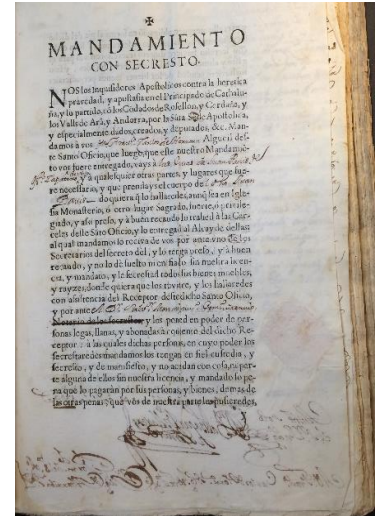 ✠
MANDAMIENTO
CON SECRESTO.
NOS los Inquisidores Apostolicos contra la heretica
pravedad, y apostasia en el Principado de Cathalu-
ña, y su partido, cõ los Cõdados de Rosellon, y Cerdaña, y
los Valls de Arã, y Andorra, por la Sãta Sede Apostolica,
y especialmente dados, creados, y deputados, &c. Man-
damos à vos Alguezil des
te Santo Oficio, que luego, que este nuestro Mandamiẽ-
to vos fuere entregado, vays à
y à qualesquier otras partes, y lugares que fue-
re necessario, y que prendays el cuerpo de
do quiera q̃ lo hallaredes, aunq̃ sea en Igle-
sia Monasterio, ò otro lugar Sagrado, fuerte, ò privile-
giado, y assi preso, y à buen recaudo lo trahed à las Car-
celes deste Sãto Oficio, y lo entregad al Alcayde dellas:
al qual mandamos lo reciva de vos por ante uno de los
Secretarios del secreto del, y lo tenga preso, y à buen
recaudo, y no lo dè suelto ni en fiado sin nuestra licen-
cia, y mandato, y le secrestad todos sus bienes muebles,
y rayzes, donde quiera que los tuviere, y los hallaredes
con assistencia del Receptor deste dicho Santo Oficio,
y por ante
Notario de los secrestos y los poned en poder de per-
sonas legas, llanas, y abonadas à contento del dicho Re-
ceptor: à las quales dichas personas, en cuyo poder los
secrestaredes mandamos los tengan en fiel custodia, y
secresto, y de manifiesto, y no acudan con cosa, ni par-
te alguna de ellos sin nuestra licencia, y mandado so pe-
na que lo pagaràn por sus personas, y bienes, demas de
las otras penas, que vos de nuestra parte les pusieredes,